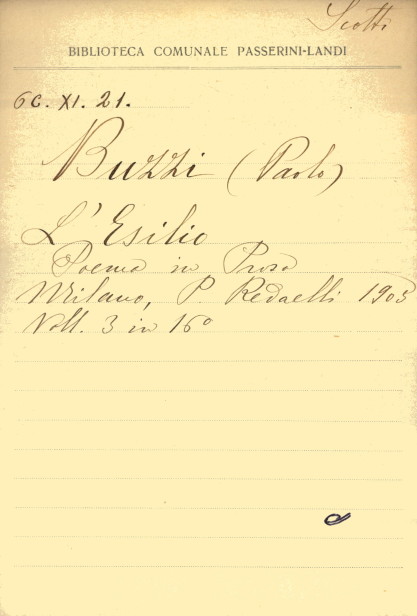 Scotti
BIBLIOTECA COMUNALE PASSERINI-LANDI
6C. XI. 21.
Buzzi (Paolo)
L'Esilio
Poema in Prosa
Milano, P. Redaelli 1905
Voll. 3 in 16°